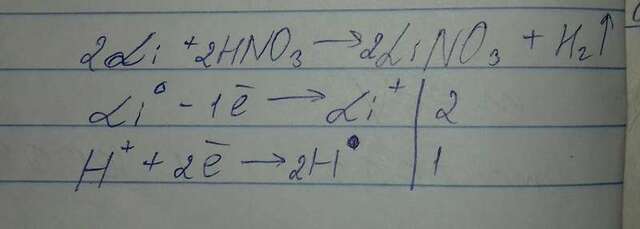 2Li + 2HNO₃ → 2LiNO₃ + H₂↑
Li⁰ - 1ē → Li⁺ | 2
H⁺ + 2ē → 2H⁰ | 1